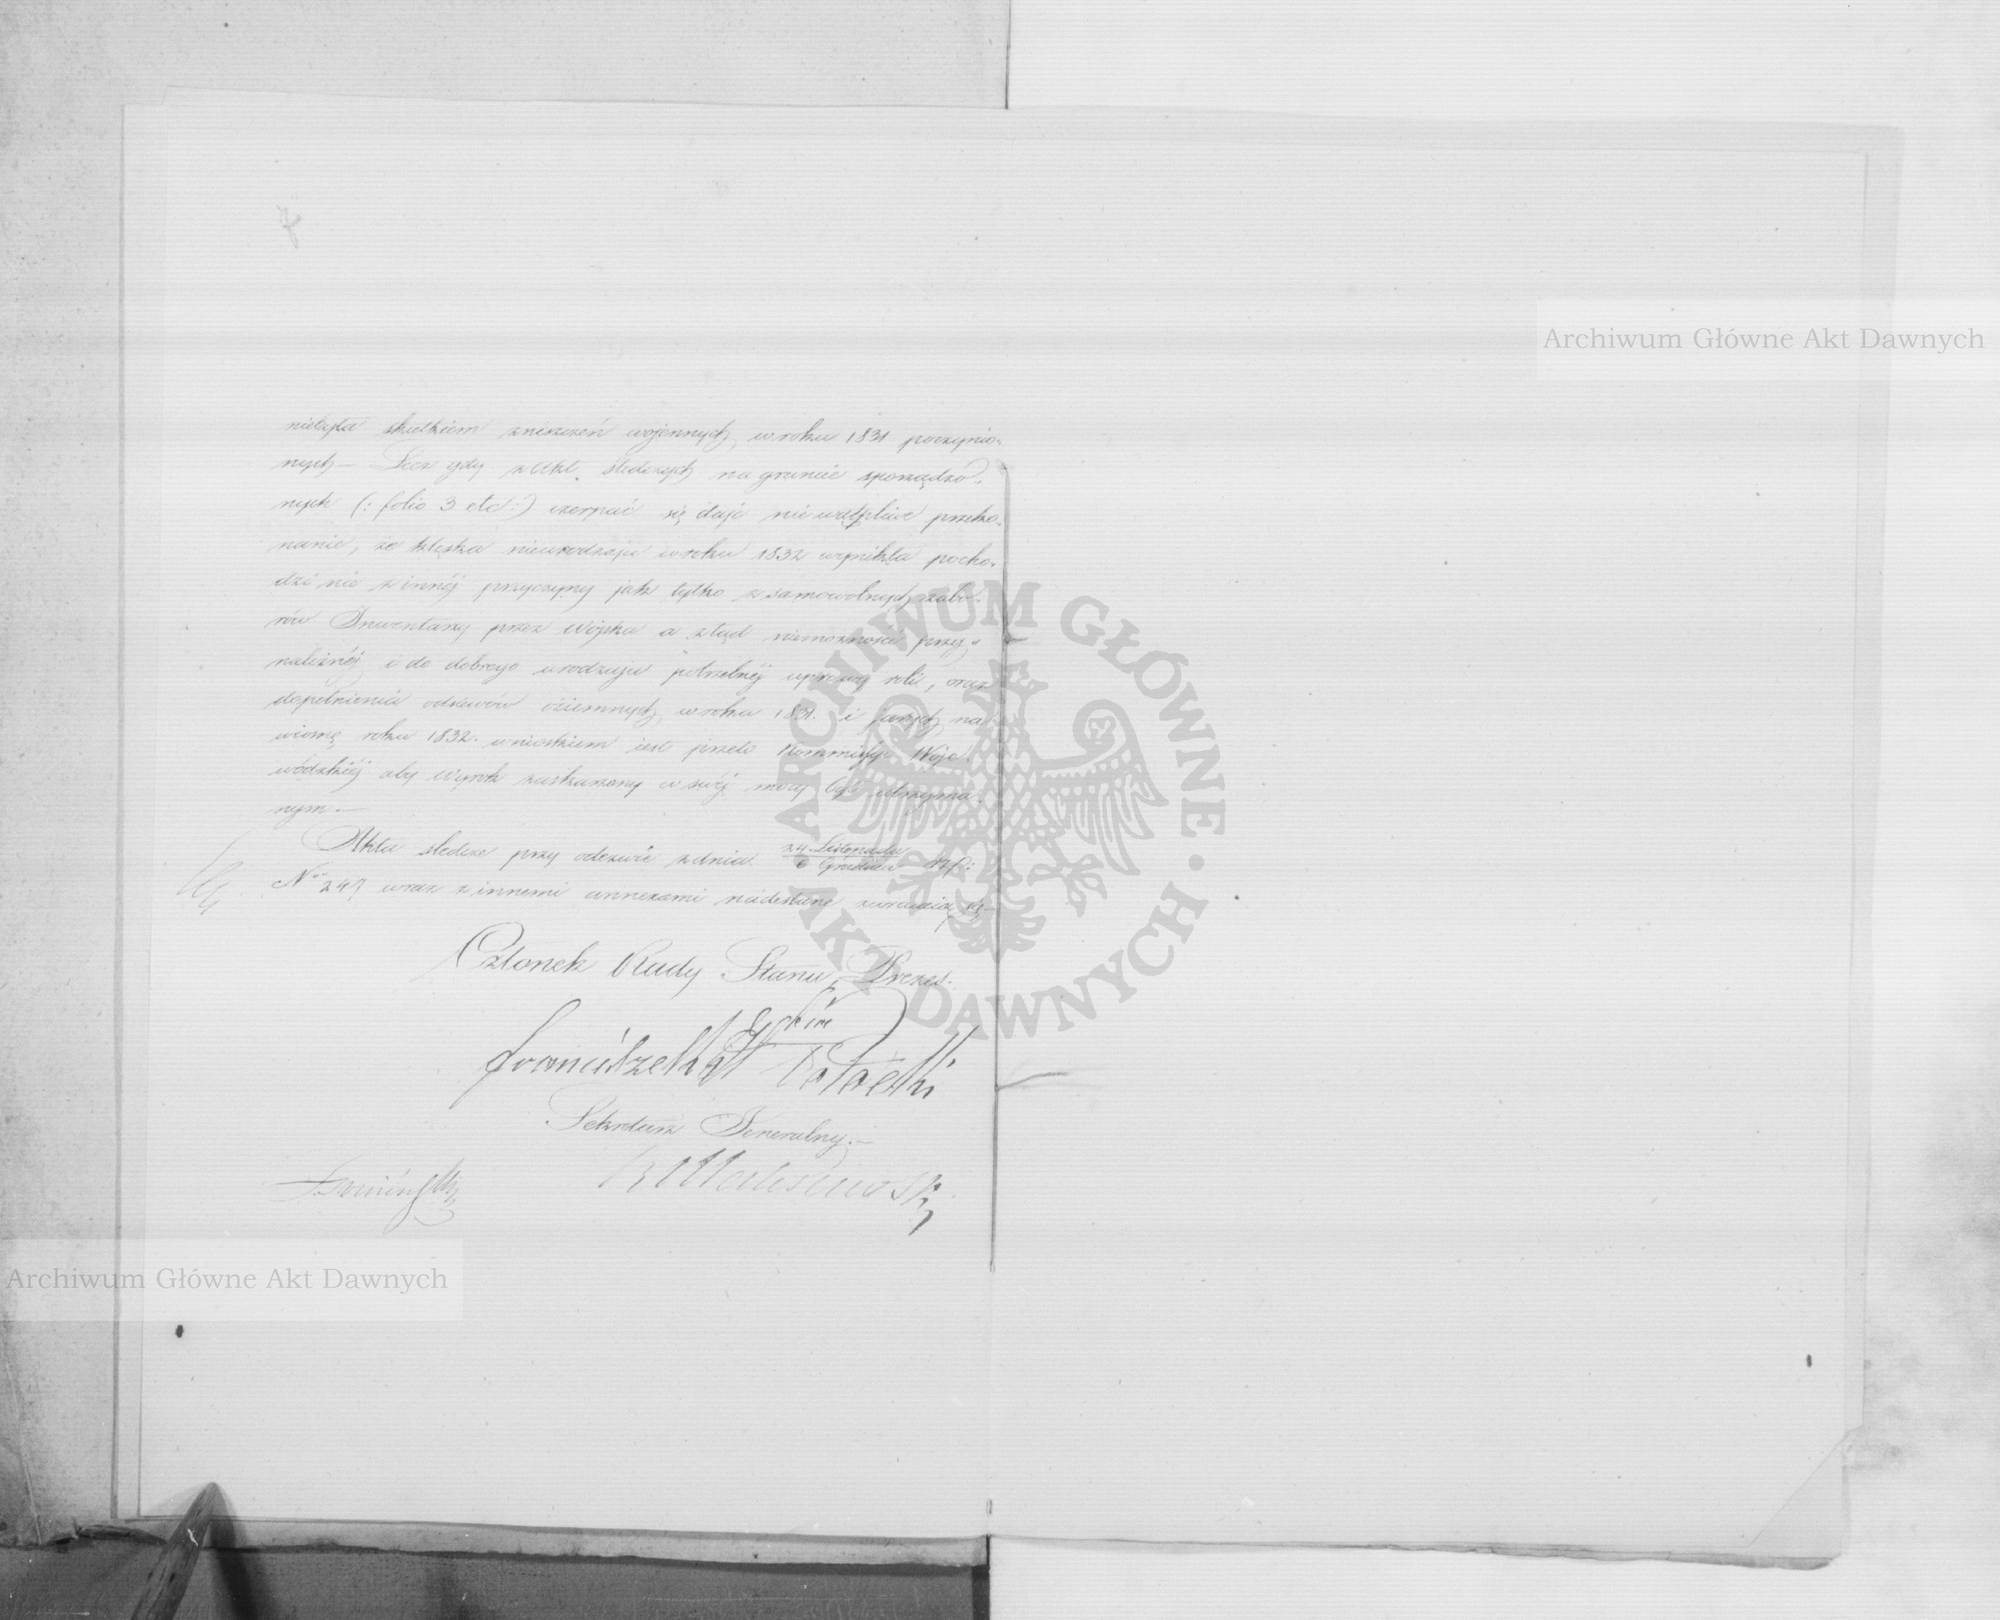 Archiwum Główne Akt Dawnych
niebyła skutkiem zniszczeń wojennych w roku 1831 poczynio-
nych – Lecz gdy z Akt śledczych na gruncie sporządzo-
nych (: folio 3 etc :) czerpać się daje niewątpliwe przeko-
nanie, że klęska nieurodzaju w roku 1832 wynikła pocho-
dzi nie z innéj przyczyny jak tylko z samowolnych zabo-
rów Inwentarzy przez Wojska a ztąd niemożności przy-
należnéj i do dobrego urodzaju potrzebnéj uprawy roli, oraz
dopełnienia odsiewów oziemnych w roku 1831. i jarych na
wiosnę roku 1832. wnioskiem iest przeto Kommissyi Woje-
wódzkiéj aby Wyrok zaskarżony w swéj mocy był utrzyma-
nym. –
Akta śledcze przy odezwie z dnia 24 Listopada / 6 Grudnia
No 247 wraz z innemi annexami nadesłane zwracaią się –
Członek Rady Stanu, Prezes.
Franciszek Potocki
Sekretarz Jeneralny. –
Archiwum Główne Akt Dawnych
ARCHIWUM GŁÓWNE • AKT DAWNYCH •